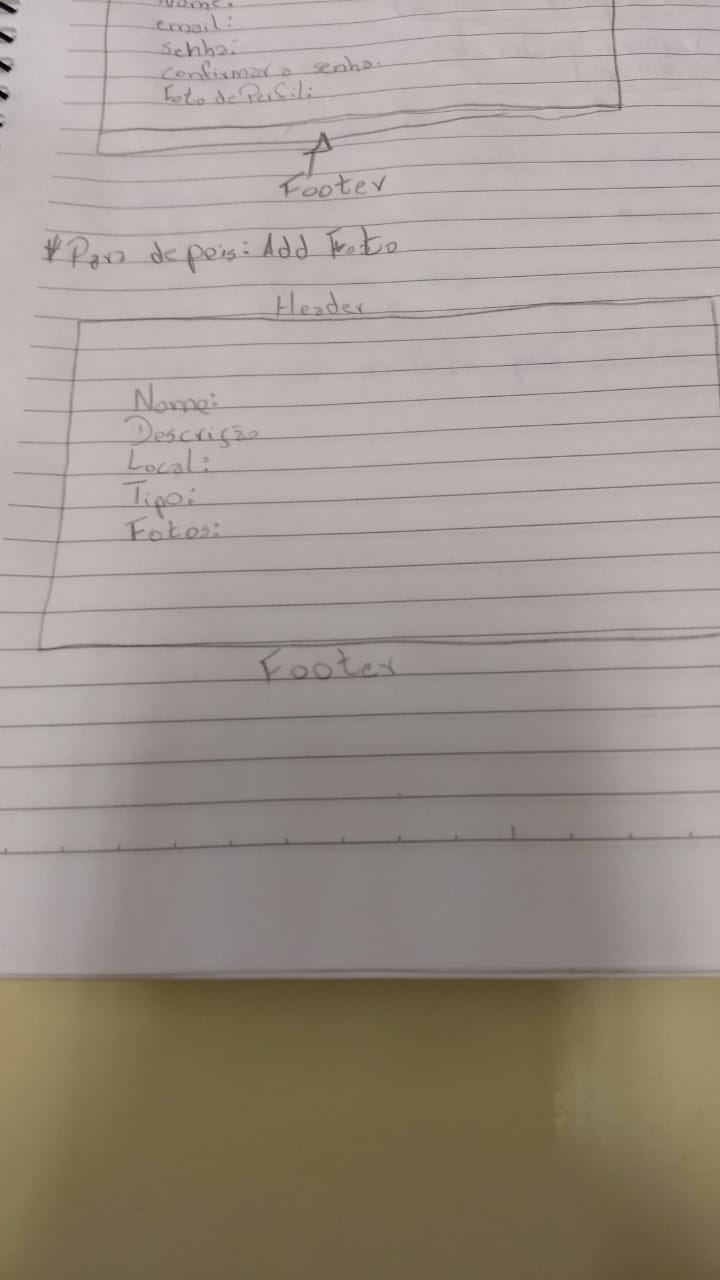 Nome:
email:
senha:
confirmar a senha:
Foto de Perfil:
Footer
* Para depois: Add Foto
Header
Nome:
Descrição
Local:
Tipo:
Fotos:
Footer